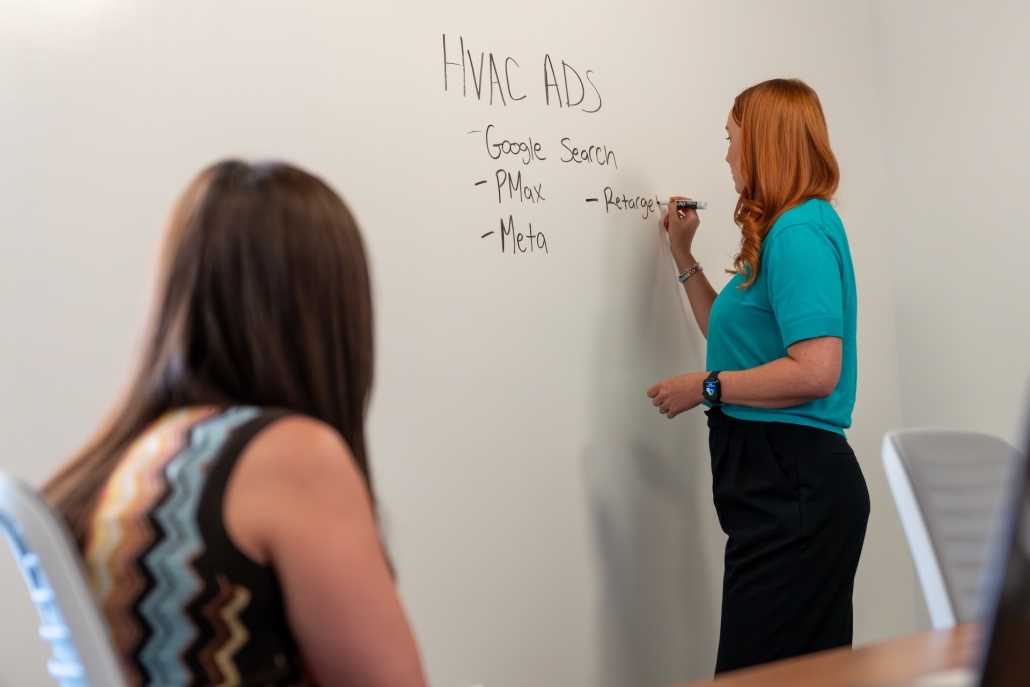 HVAC ADS
- Google Search
- PMax - Retarget
- Meta